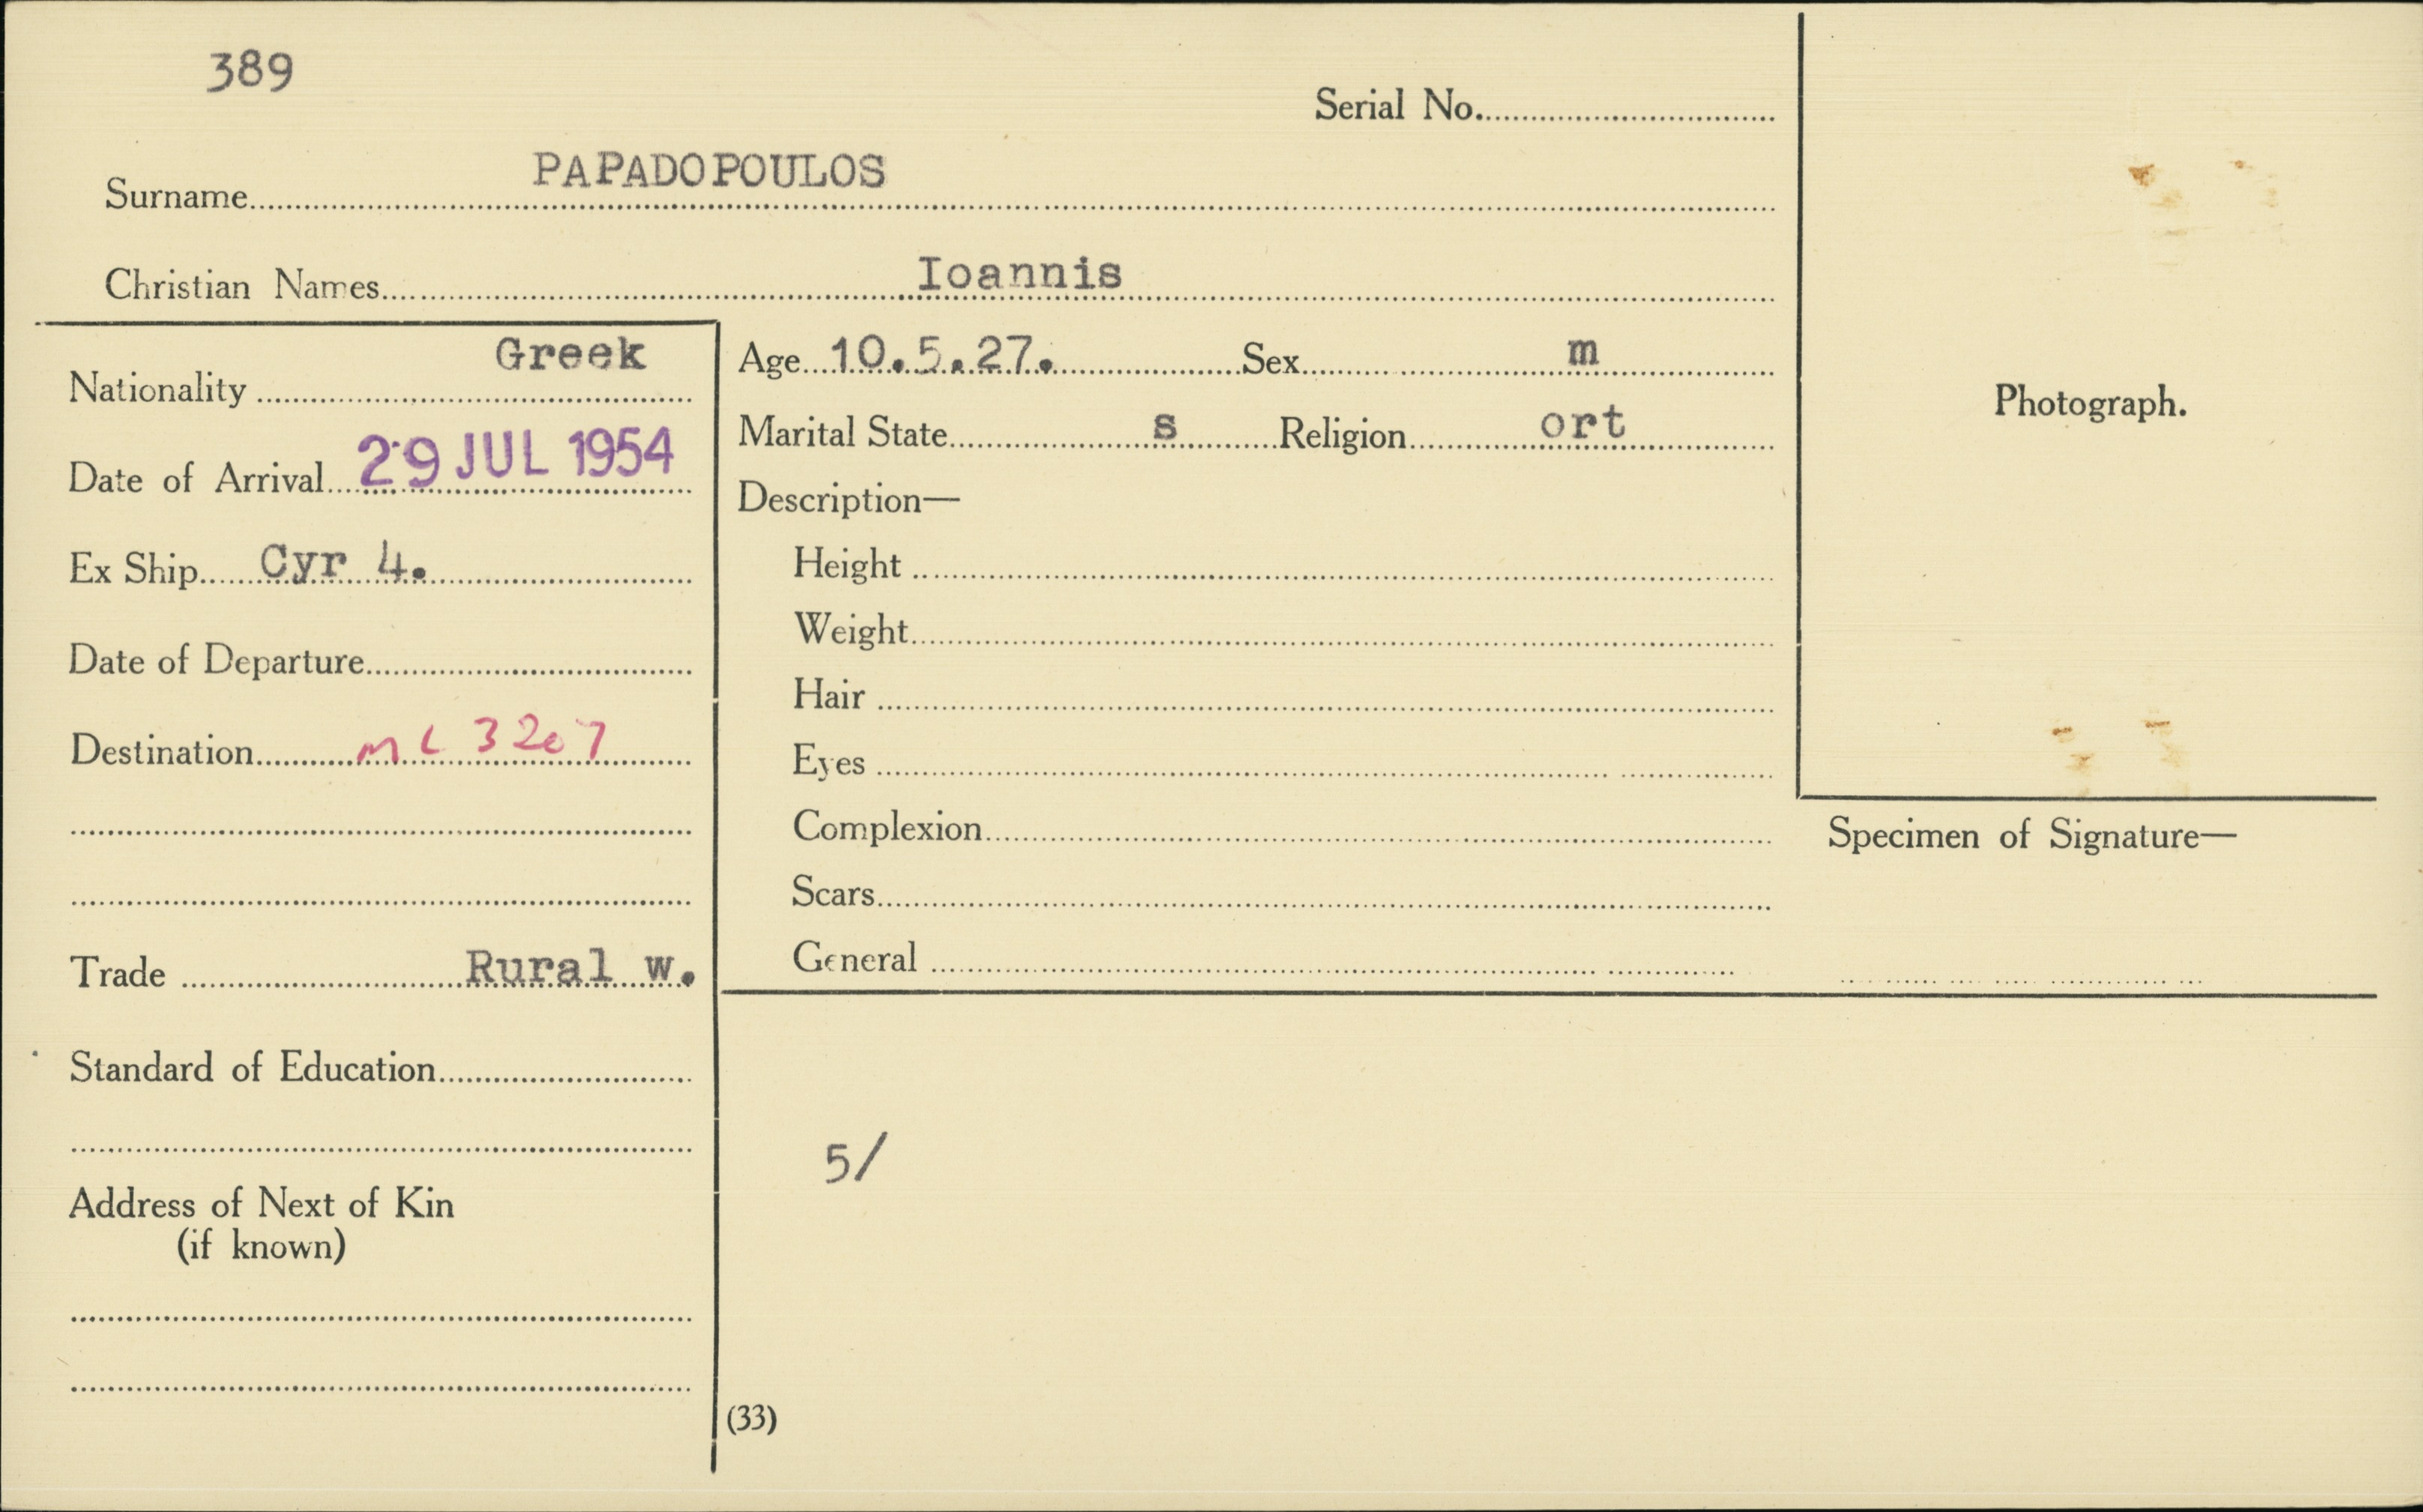 389
Serial No.
Surname PAPADOPOULOS
Christian Names Ioannis
Nationality Greek
Date of Arrival 29 JUL 1954
Ex Ship Cyr 4.
Date of Departure
Destination ML 3207
Trade Rural w.
Standard of Education
Address of Next of Kin
(if known)
Age 10.5.27. Sex m
Marital State s Religion ort
Description—
Height
Weight
Hair
Eyes
Complexion
Scars
General
Photograph.
Specimen of Signature—
5/
(33)